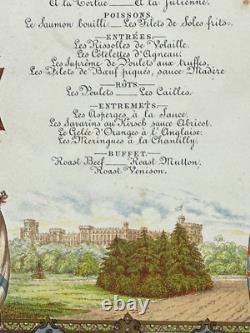 A la Tortue ___ A la Julienne.
POISSONS.
Le Saumon bouilli ___ Les Filets de Soles frits.
ENTRÉES.
Les Rissolles de Volaille.
Les Côtelettes d'Agneau.
Les Suprême de Poulets aux truffes.
Les Filets de Bœuf piqués, sauce Madère
RÔTS.
Les Poulets ___ Les Cailles.
ENTREMETS.
Les Asperges à la Sauce.
Les Savarins au Kirsch sauce Abricot.
Le Gelée d'Oranges à l'Anglaise.
Les Meringues à la Chantilly.
BUFFET.
Roast Beef ___ Roast Mutton.
Roast Venison.